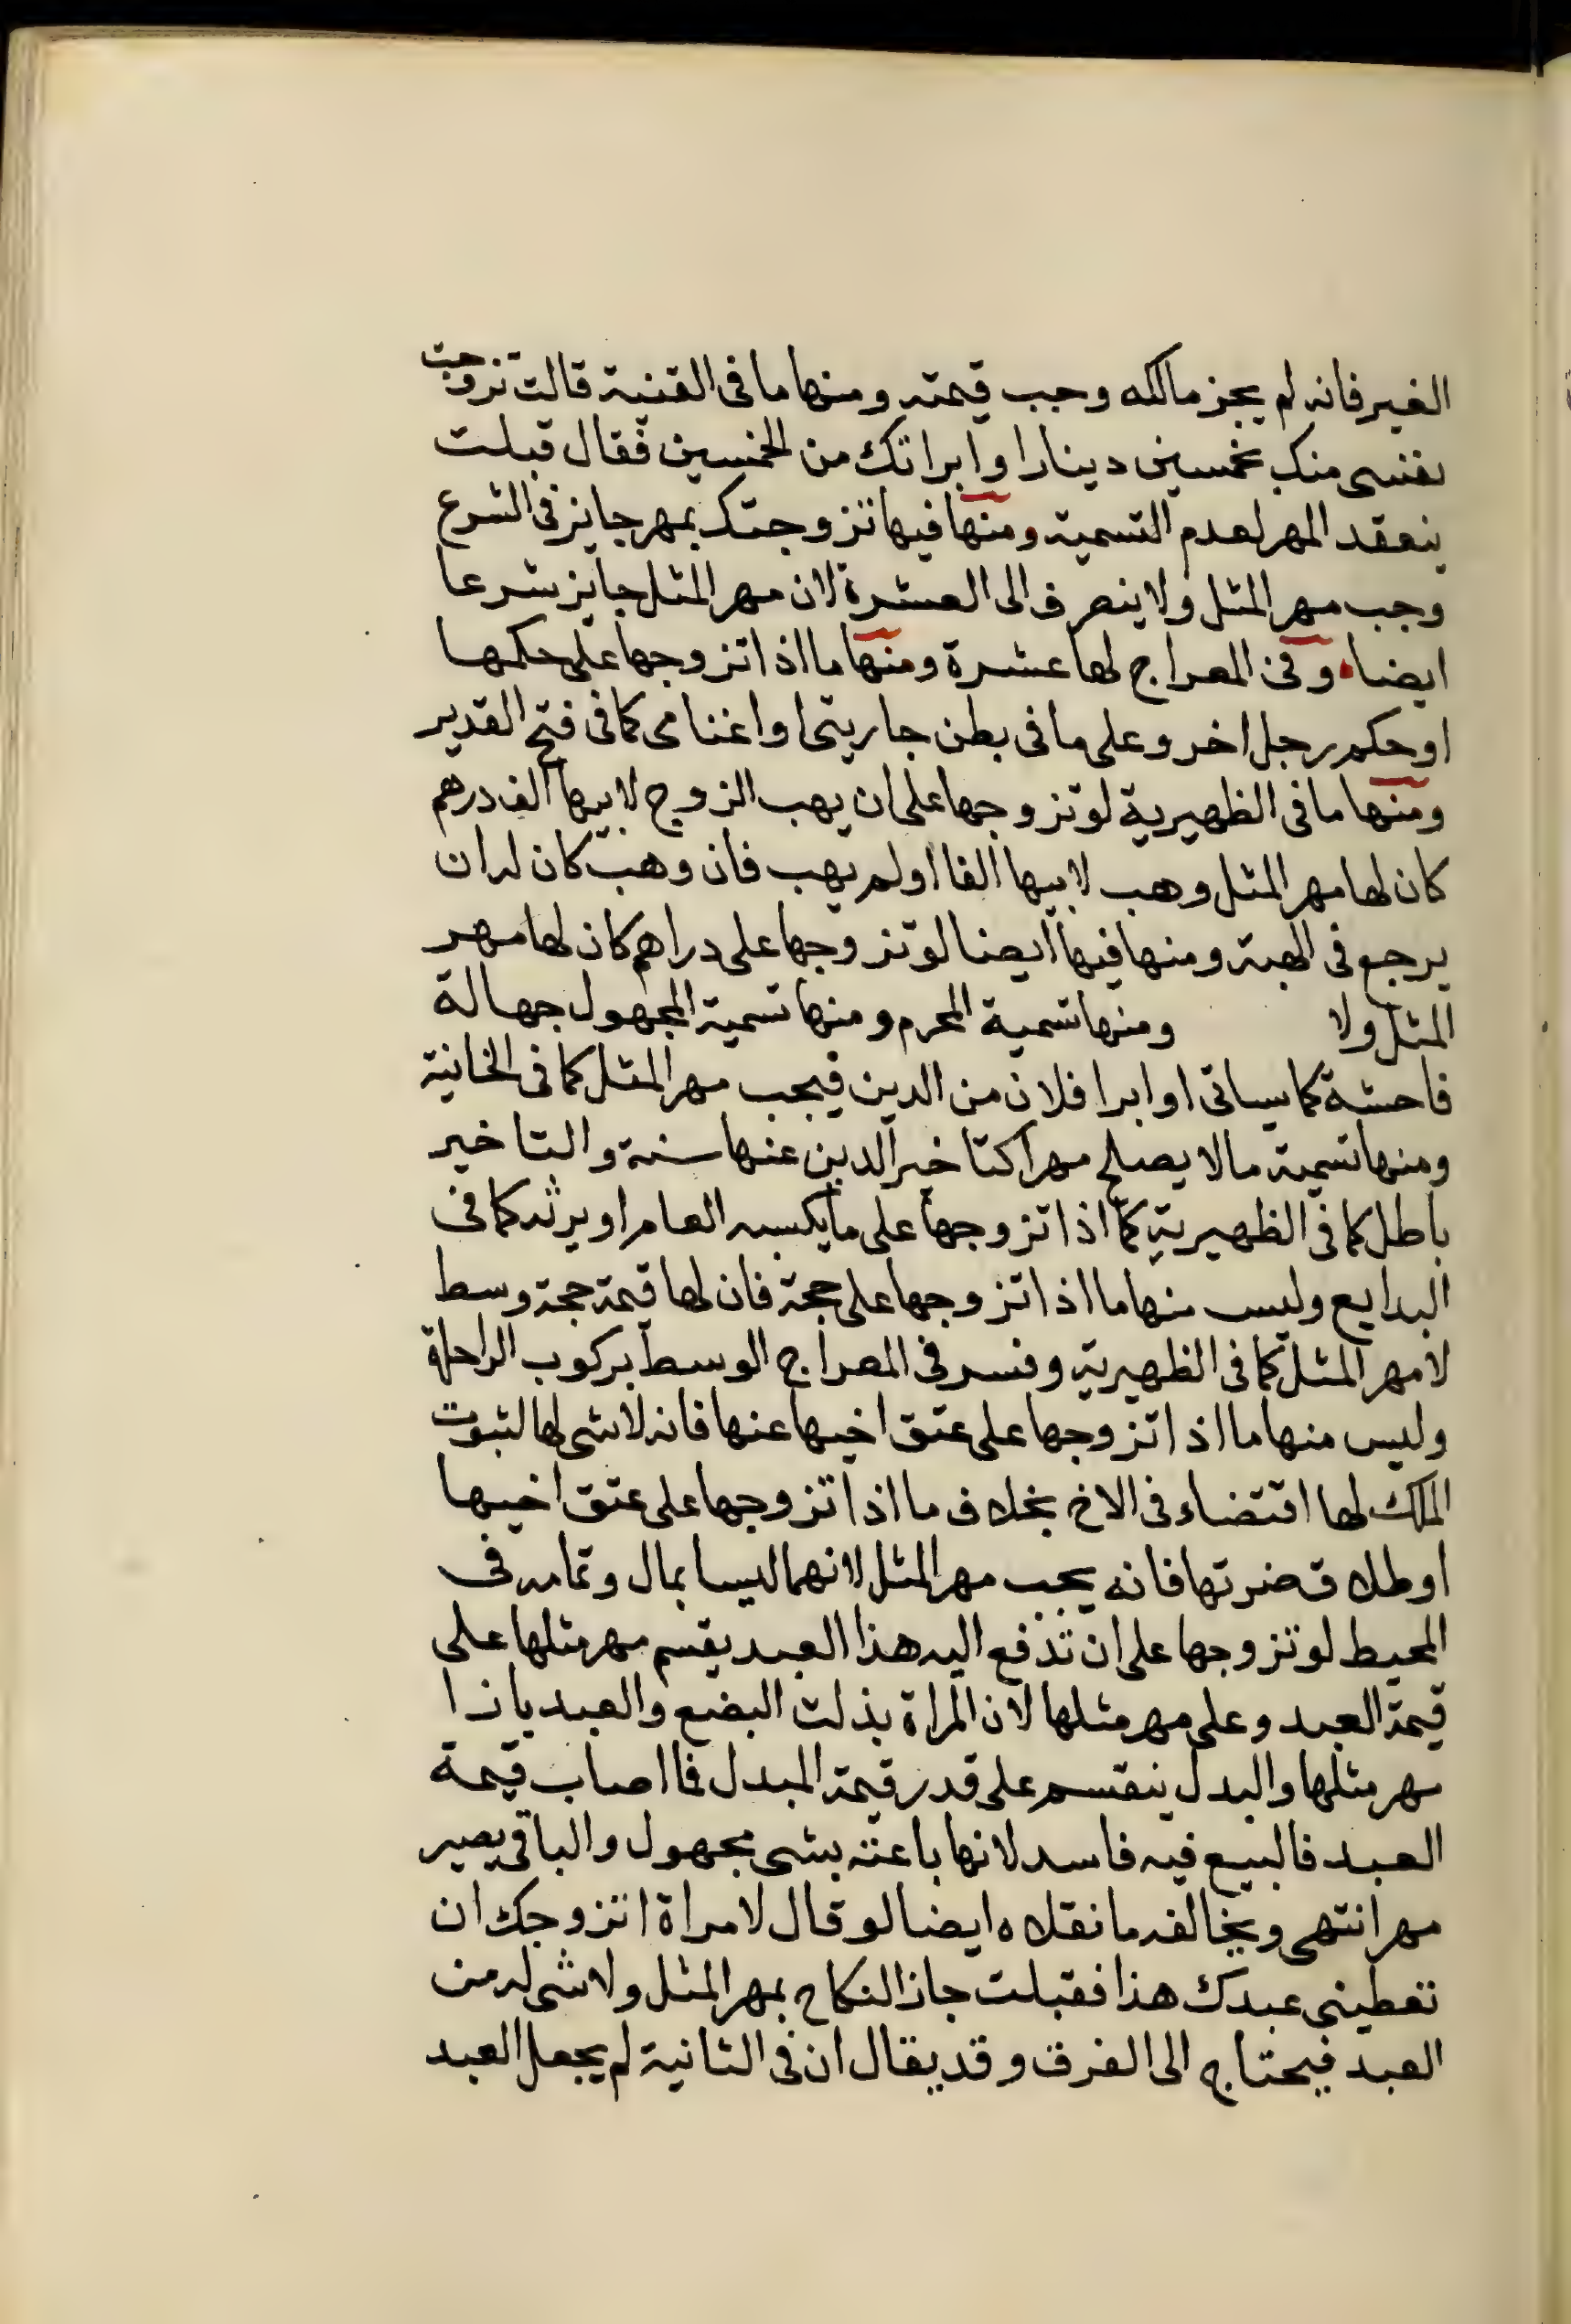 الغير فانه لم يجز مالكه وجب قيمته ومنها ما فى القنية قالت تزوجت
نفسى منك بخمسين دينارا وابراتك من الخمسين فقال قبلت
ينعقد المهر لعدم التسمية ومنها فيها تزوجتك بمهر جايز فى الشرع
وجب مهر المثل ولا ينصرف الى العشرة لان مهر المثل جايز شرعا
ايضا وفى المعراج لها عشرة ومنها ما اذا تزوجها على حكمها
او حكم رجل اخر وعلى ما فى بطن جاريتى او اغنامى كما فى فتح القدير
ومنها ما فى الظهيرية لو تزوجها على ان يهب الزوج لابيها الف درهم
كان لها مهر المثل وهب لابيها الفا او لم يهب فان وهب كان له ان
يرجع فى الهبة ومنها فيها ايضا لو تزوجها على دراهم كان لها مهر
المثل ولا ومنها تسمية المحرم ومنها تسمية المجهول جهالة
فاحشة كما سياتى او ابرا فلان من الدين فيجب مهر المثل كما فى الخانية
ومنها تسمية مالا يصلح مهرا كتاخير الدين عنها سنة والتاخير
باطل كما فى الظهيرية كما اذا تزوجها على ما يكسبه العام او يرثه كما فى
البدايع وليس منها ما اذا تزوجها على حجة فان لها قيمة حجة وسط
لا مهر المثل كما فى الظهيرية وفسر فى المعراج الوسط بركوب الراحلة
وليس منها ما اذا تزوجها على عتق اخيها عنها فانه لا شى لها لثبوت
الملك لها اقتضاء فى الاخ بخلاف ما اذا تزوجها على عتق اخيها
او طلاق ضرتها فانه يجب مهر المثل لانهما ليسا بمال وتمامه فى
المحيط لو تزوجها على ان تدفع اليه هذا العبد يقسم مهر مثلها على
قيمة العبد وعلى مهر مثلها لان المراة بذلت البضع والعبد بازا
مهر مثلها والبدل ينقسم على قدر قيمة المبدل فما اصاب قيمة
العبد فالبيع فيه فاسد لانها باعته بشى مجهول والباقى يصير
مهر انتهى ويخالفه ما نقلاه ايضا لو قال لامراة اتزوجك ان
تعطينى عبدك هذا فقبلت جاز النكاح بمهر المثل ولا شى له من
العبد فيحتاج الى الفرق وقد يقال ان فى الثانية لم يجعل العبد